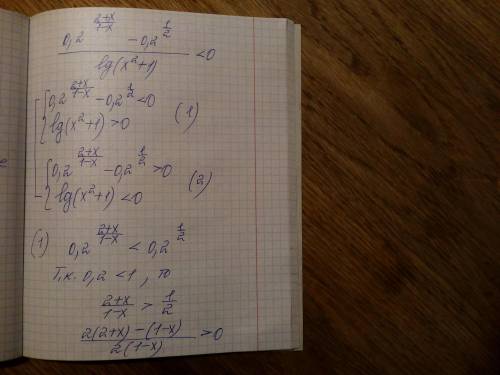 (0,2^((2+x)/(1-x)) - 0,2^(1/2)) / lg(x²+1) < 0
[ { 0,2^((2+x)/(1-x)) - 0,2^(1/2) < 0
lg(x²+1) > 0 (1)
{ 0,2^((2+x)/(1-x)) - 0,2^(1/2) > 0
lg(x²+1) < 0 (2)
(1) 0,2^((2+x)/(1-x)) < 0,2^(1/2)
Т.к. 0,2 < 1, то
(2+x)/(1-x) > 1/2
(2(2+x) - (1-x)) / (2(1-x)) > 0